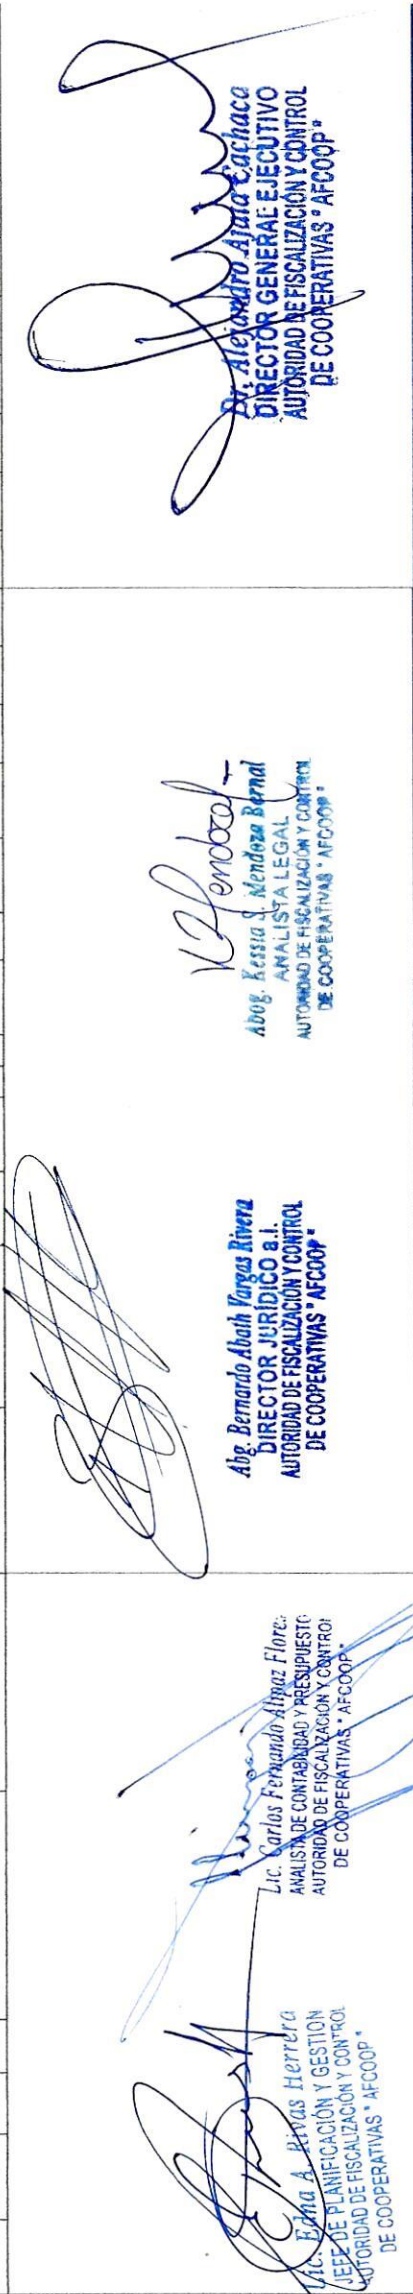 Lic. Edna A. Rivas Herrera
JEFE DE PLANIFICACIÓN Y GESTION
AUTORIDAD DE FISCALIZACIÓN Y CONTROL
DE COOPERATIVAS "AFCOOP"
Lic. Carlos Fernando Alipaz Flores
ANALISTA DE CONTABILIDAD Y PRESUPUESTO
AUTORIDAD DE FISCALIZACIÓN Y CONTROL
DE COOPERATIVAS "AFCOOP"
Abg. Bernardo Abath Vargas Rivera
DIRECTOR JURÍDICO a.i.
AUTORIDAD DE FISCALIZACIÓN Y CONTROL
DE COOPERATIVAS "AFCOOP"
K Mendoza
Abog. Kessia J. Mendoza Bernal
ANALISTA LEGAL
AUTORIDAD DE FISCALIZACIÓN Y CONTROL
DE COOPERATIVAS "AFCOOP"
Dr. Alejandro Ajata Cachaca
DIRECTOR GENERAL EJECUTIVO
AUTORIDAD DE FISCALIZACIÓN Y CONTROL
DE COOPERATIVAS "AFCOOP"